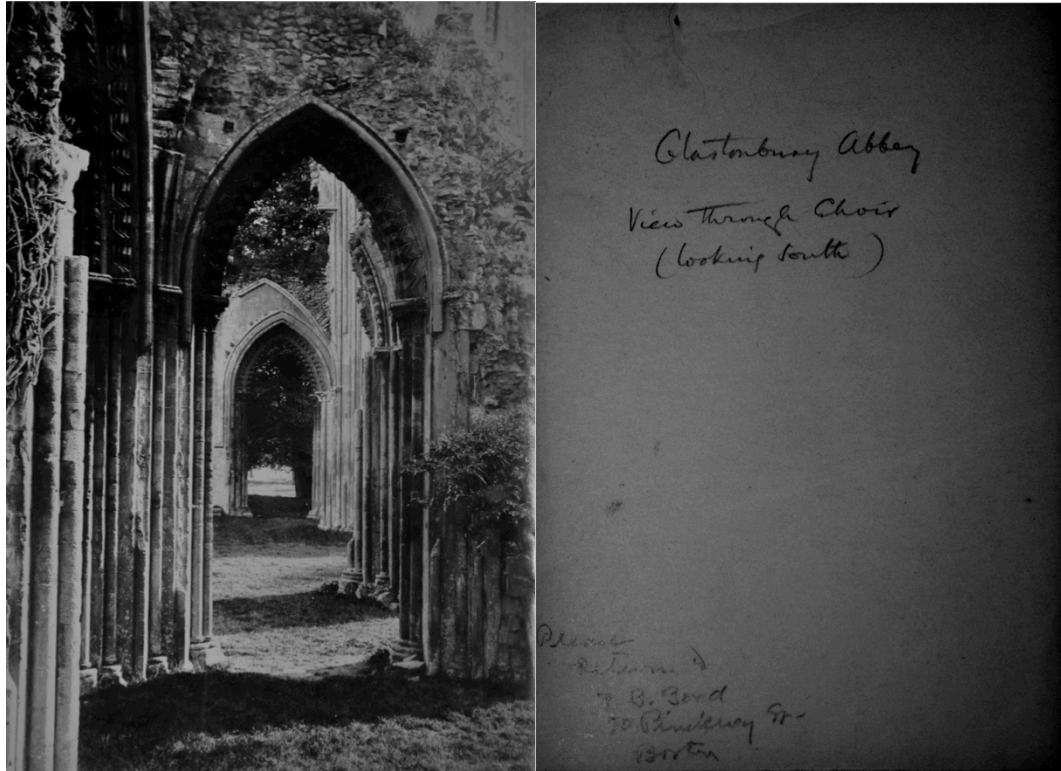 Glastonbury Abbey
View through Choir
(looking South)
Please
Return to
F B. Bond
70 Pinckney St.
Boston